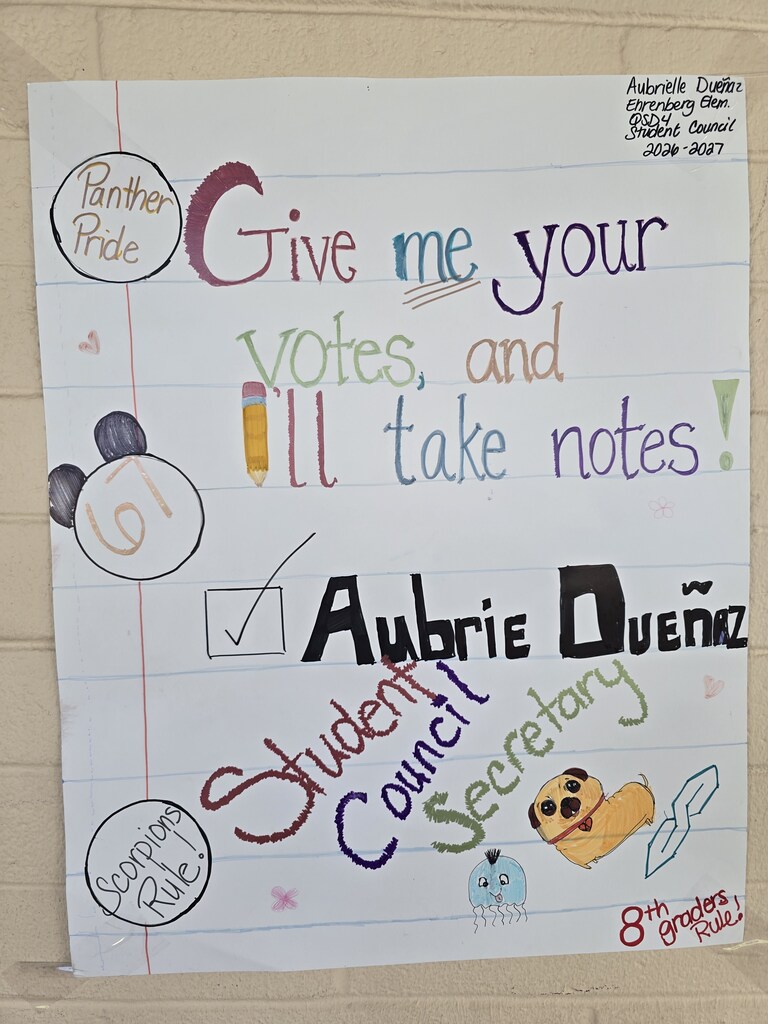 Aubrielle Dueñaz
Ehrenberg Elem.
QSD4
Student Council
2026-2027
Panther
Pride
Give me your
votes, and
I'll take notes!
67
Aubrie Dueñaz
Student
Council
Secretary
Scorpions
Rule!
8th graders
Rule!